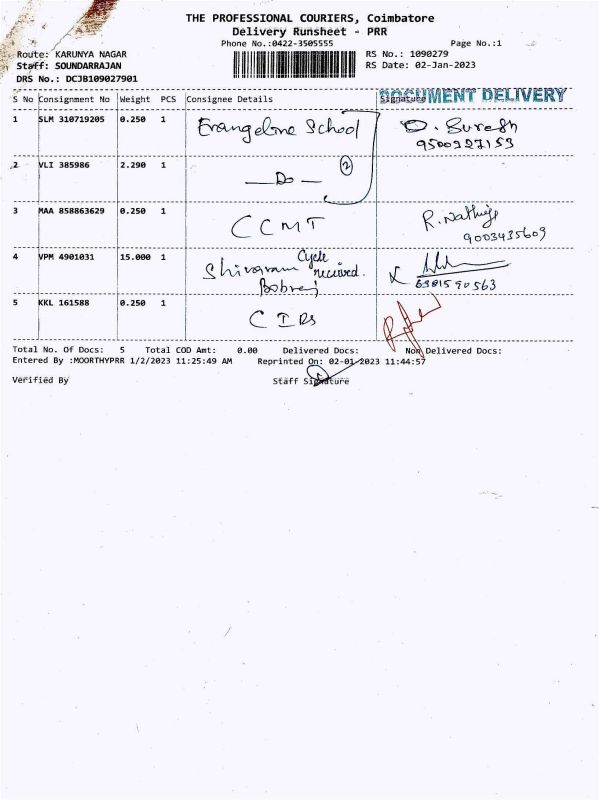 THE PROFESSIONAL COURIERS, Coimbatore
Delivery Runsheet - PRR
Phone No.:0422-3505555 Page No.:1
Route: KARUNYA NAGAR RS No.: 1090279
Staff: SOUNDARRAJAN RS Date: 02-Jan-2023
DRS No.: DCJB109027901
S No Consignment No Weight PCS Consignee Details Signature DOCUMENT DELIVERY
1 SLM 310719205 0.250 1 Evangeline School D. Suresh
9500327153
2 VLI 385986 2.290 1 — Do — 2
3 MAA 858863629 0.250 1 CCMT R. Nathiya
9003435609
4 VPM 4901031 15.000 1 Shivaram Cycle received.
6381590563
5 KKL 161588 0.250 1 CIRS
Total No. Of Docs: 5 Total COD Amt: 0.00 Delivered Docs: Non Delivered Docs:
Entered By :MOORTHYPRR 1/2/2023 11:25:49 AM Reprinted On: 02-01-2023 11:44:57
Verified By Staff Signature